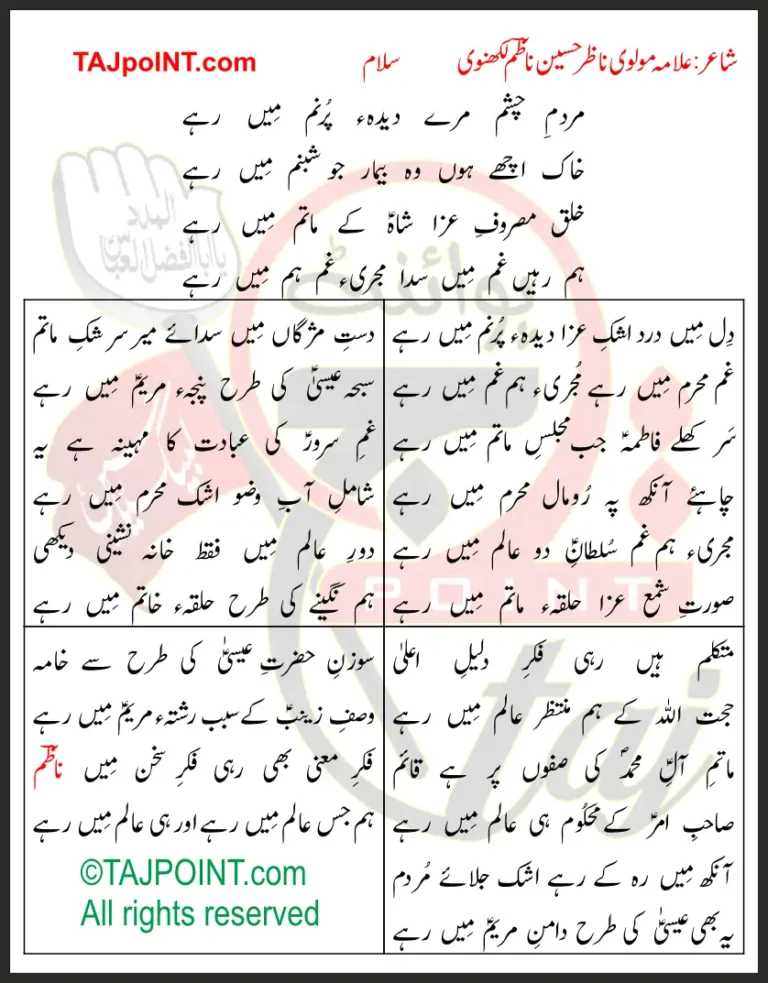 شاعر: علامہ مولوی ناظر حسین ناظم لکھنوی سلام TAJpoINT.com
مردمِ چشم مرے دیدہء پُرنم میں رہے
خاک اچھے ہوں وہ بیمار جو شبنم میں رہے
خلق مصروفِ عزا شاہؑ کے ماتم میں رہے
ہم رہیں غم میں سدا مجریء غم ہم میں رہے
دِل میں درد اشکِ عزا دیدہء پُرنم میں رہے
غم محرم میں رہے مُجریء ہم غم میں رہے
سَر کھلے فاطمہؑ جب مجلسِ ماتم میں رہے
چاہئے آنکھ پہ رُومال محرم میں رہے
مجریء ہم غم سُلطانِؑ دو عالم میں رہے
صورتِ شمعِ عزا حلقہء ماتم میں رہے
دستِ مژگاں میں سدائے میر سرشکِ ماتم
سبحہ عیسیٰؑ کی طرح پنجہء مریمؑ میں رہے
غمِ سرورؑ کی عبادت کا مہینہ ہے یہ
شاملِ آبِ وضو اشک محرم میں رہے
دورِ عالم میں فقط خانہ نشینی دیکھی
ہم نگینے کی طرح حلقہء خاتم میں رہے
متکلم ہیں رہی فکرِ دلیلِ اعلیٰ
حجت اللہ کے ہم منتظر عالم میں رہے
ماتمِ آلِؑ محمدؐ کی صفوں پر ہے قائم
صاحبِ امرؑ کے محکُوم ہی عالم میں رہے
آنکھ میں رہ کے رہے اشک جلائے مُردم
یہ بھی عیسیٰؑ کی طرح دامنِ مریمؑ میں رہے
سوزنِ حضرتِ عیسیٰؑ کی طرح سے خامہ
وصفِ زینبؑ کے سبب رشتہء مریمؑ میں رہے
فکرِ معنی بھی رہی فکرِ سخن میں ناظم
ہم جس عالم میں رہے اور ہی عالم میں رہے
©TAJPOINT.com
All rights reserved
المدد
یا ابالفضل العباس
پوائنٹ
تاج
لبیک یا حسین
POINT
taj